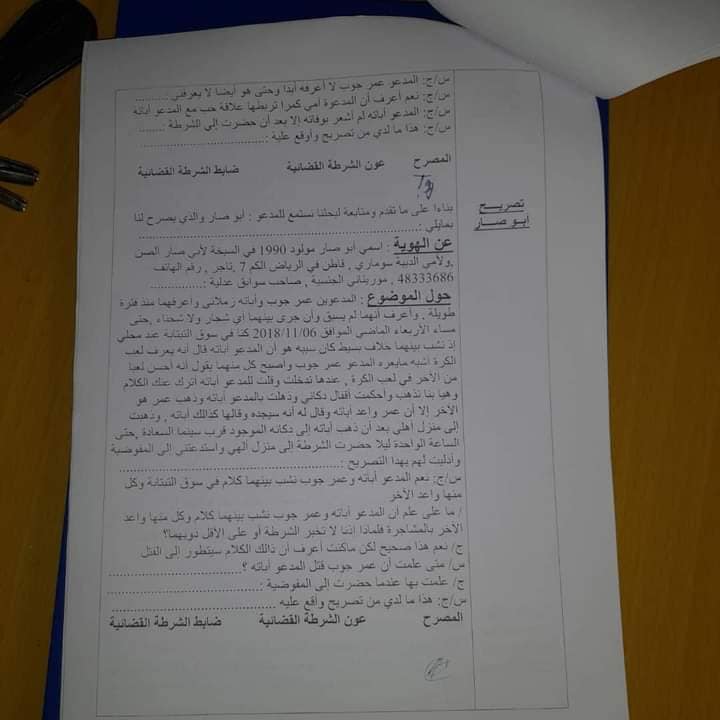 س/ج: المدعو عمر جوب لا أعرفه أبدا وحتى هو أيضا لا يعرفني..........
س/ج: نعم أعرف أن المدعوة أمي كمرا تربطها علاقة حب مع المدعو أباته
س/ج: المدعو أباته لم أشعر بوفاته إلا بعد أن حضرت إلى الشرطة :.......
س/ج: هذا ما لدي من تصريح وأوقع علية :..............................
المصرح عون الشرطة القضائية ضابط الشرطة القضائية
تصريح
أبو صار
بناءا على ما تقدم ومتابعة لبحثنا نستمع للمدعو : أبو صار والذي يصرح لنا
بمايلي :..............................
عن الهوية : اسمي أبو صار مولود 1990 في السبخة لأبي صار الصن
,ولأمي الدبية سوماري , قاطن في الرياض الكم 7 ,تاجر , رقم الهاتف
48333686 , موريتاني الجنسية , صاحب سوابق عدلية :..............
حول الموضوع : المدعوين عمر جوب وأباته زملائي وأعرفهما منذ فترة
طويلة , وأعرف أنهما لم يسبق وأن جرى بينهما أي شجار ولا شحناء ,حتى
مساء الأربعاء الماضي الموافق 2018/11/06 كنا في سوق التبتابة عند محلي
إذ نشب بينهما خلاف بسيط كان سببه هو أن المدعو أباته قال أنه يعرف لعب
الكرة أشبه مايعره المدعو عمر جوب وأصبح كل منهما يقول أنه أحسن لعبا
من الآخر في لعب الكرة , عندها تدخلت وقلت للمدعو أباته اترك عنك الكلام
وهيا بنا نذهب وأحكمت أقفال دكاني وذهلت بالمدعو أباته وذهب عمر هو
الآخر إلا أن عمر واعد أباته وقال له أنه سيجده وقالها كذالك أباته , وذهبت
إلى منزل أهلي بعد أن ذهب أباته إلى دكانه الموجود قرب سينما السعادة ,حتى
الساعة الواحدة ليلا حضرت الشرطة إلى منزل ألهي واستدعتني الى المفوضية
وأدليت لهم بهذا التصريح :..............................
س/ج: نعم المدعو أباته وعمر جوب نشب بينهما كلام في سوق التبتابة وكل
منها واعد الآخر
/ ما على علم أن المدعو أباته وعمر جوب نشب بينهما كلام وكل منها واعد
الآخر بالمشاجرة فلماذا اذنا لا تخبر الشرطة أو على الأقل ذويهما؟
ج/ نعم هذا صحيح لكن ماكنت أعرف أن ذالك الكلام سيتطور إلى القتل
س/ متى علمت أن عمر جوب قتل المدعو أباته ؟..............................
ج/ علمت بها عندما حضرت الى المفوضية :..............................
س/ج: هذا ما لدي من تصريح وأقع عليه ..............................
المصرح عون الشرطة القضائية ضابط الشرطة القضائية